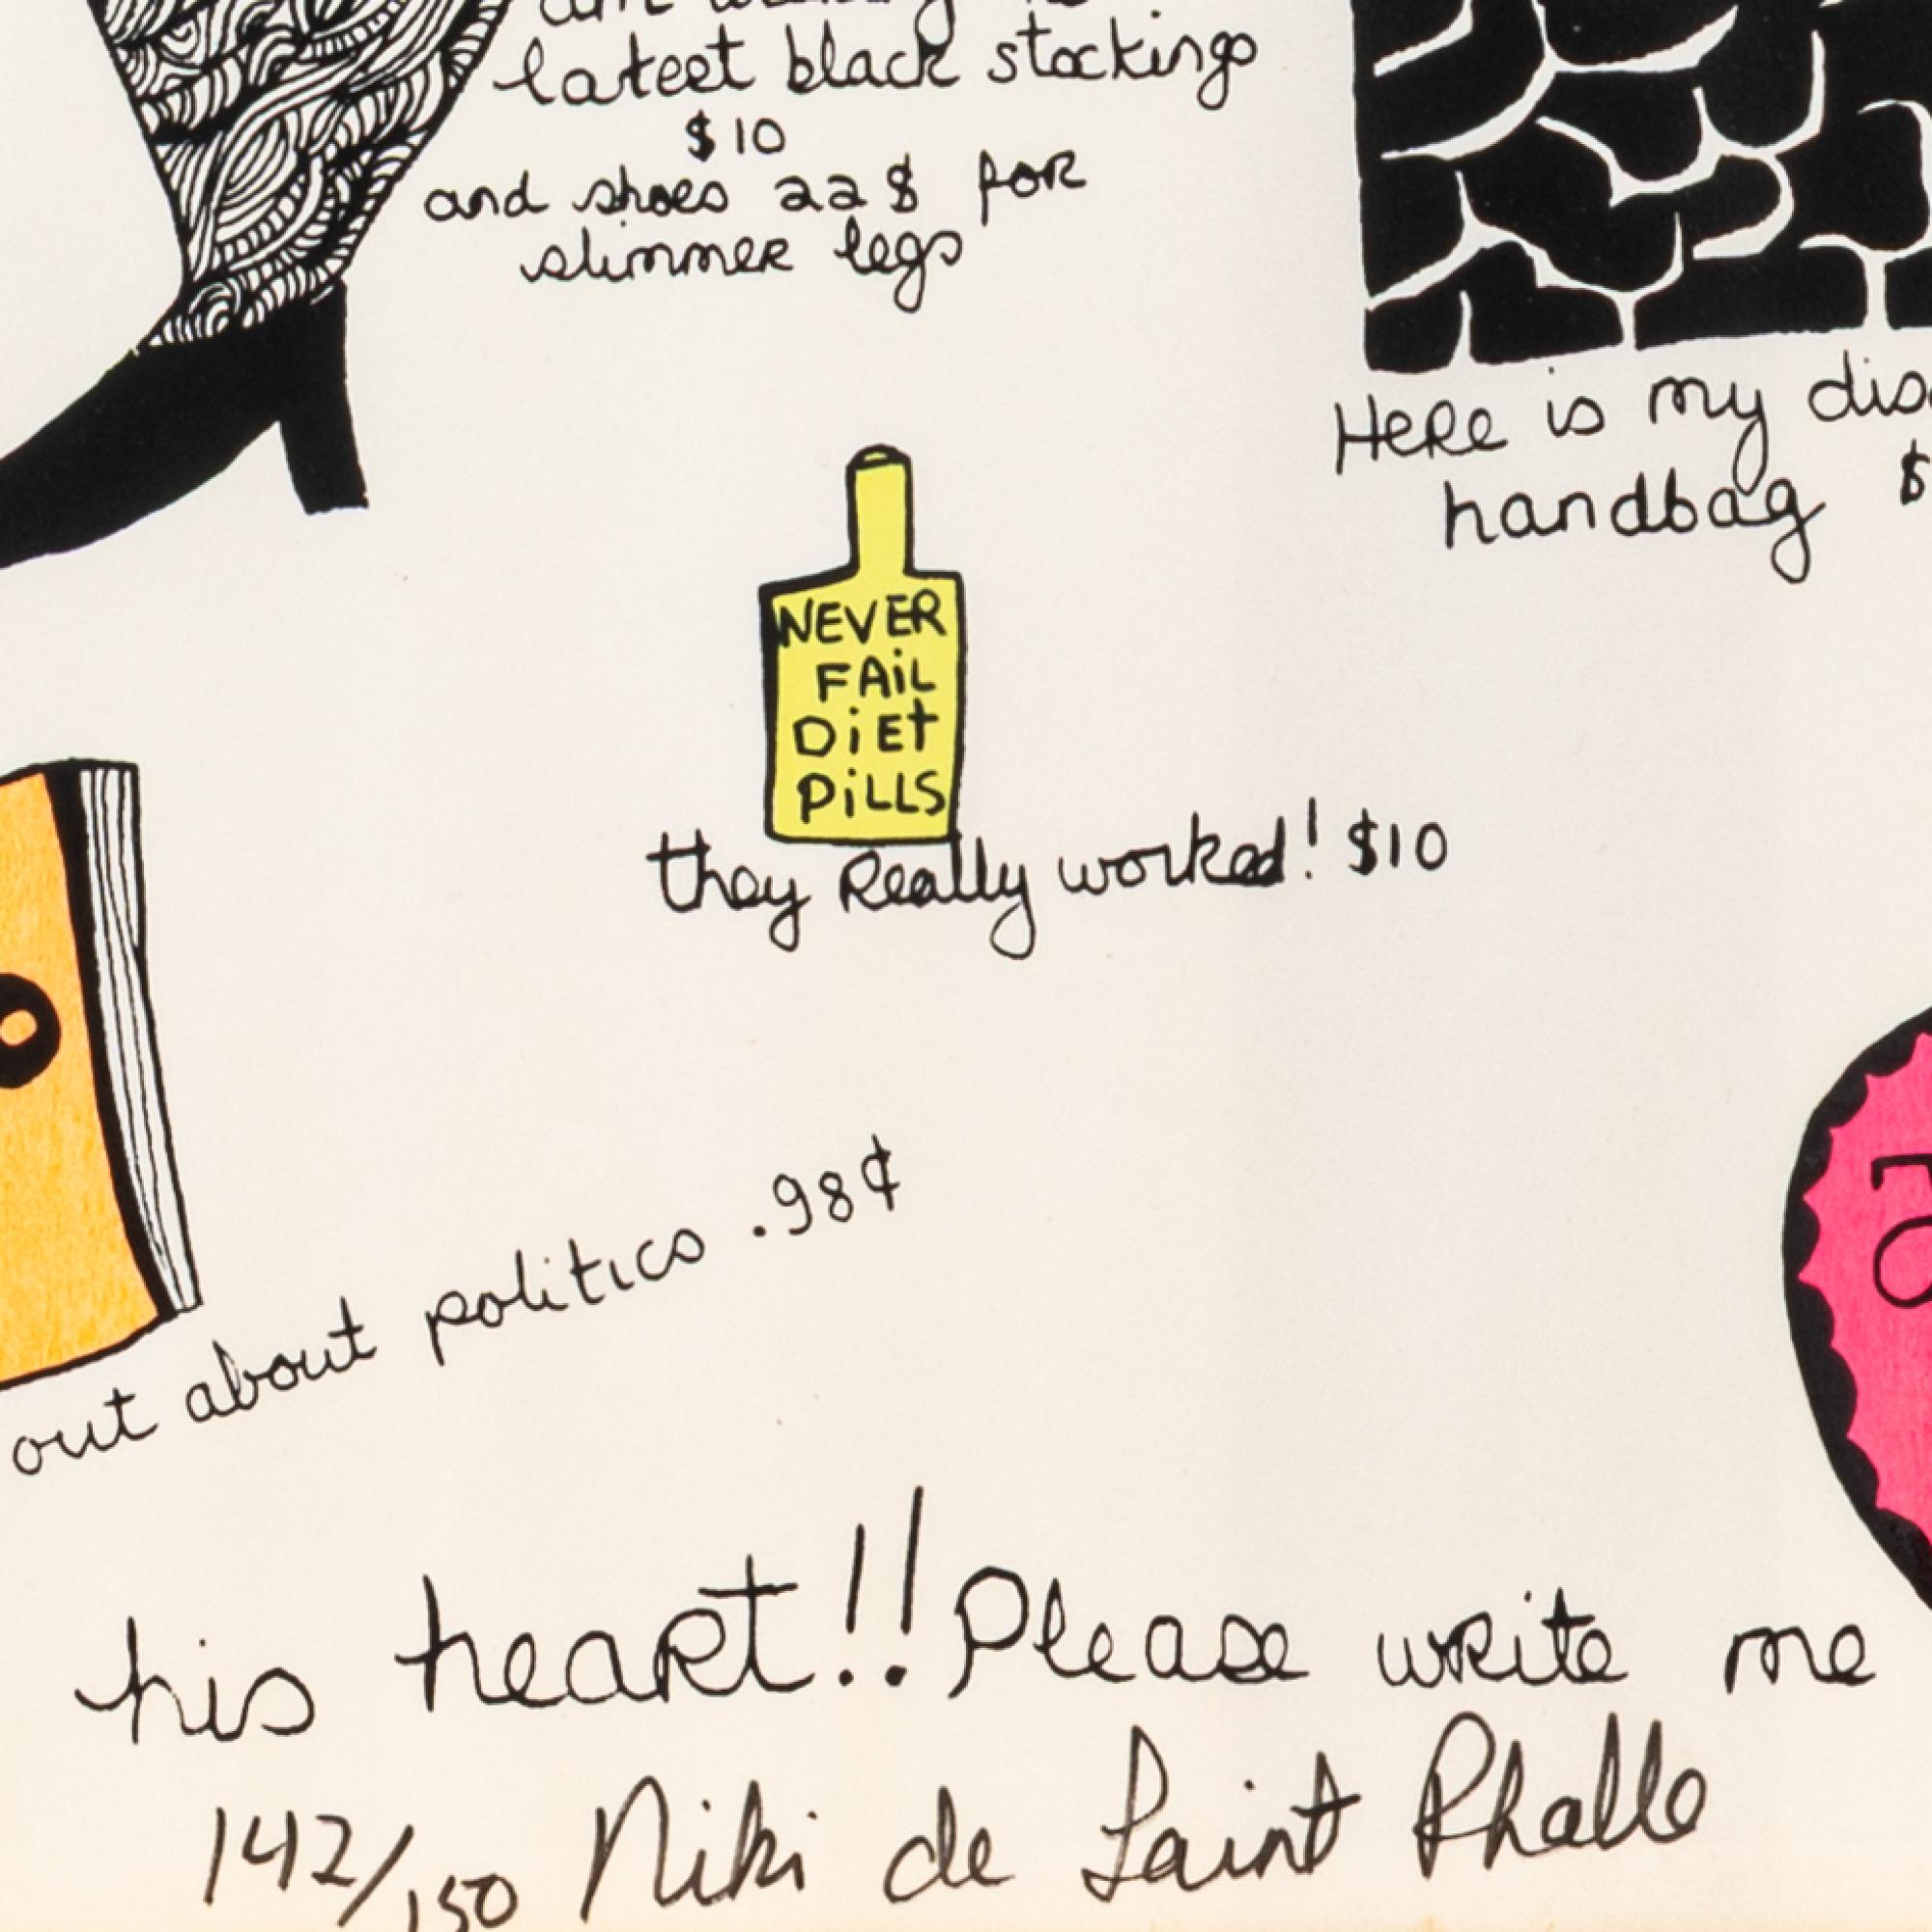 latest black stockings
$10
and shoes 22$ for
slimmer legs
Here is my
handbag $
NEVER
FAiL
DiEt
PiLLS
they Really worked! $10
out about politics .98¢
his heart!! Please write me
142/150 Niki de Saint Phalle